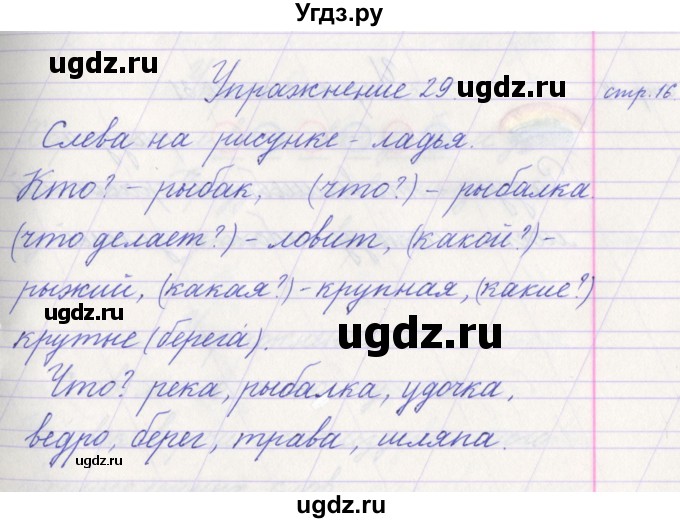 Угдз.ру
Упражнение 29. стр. 16.
Слева на рисунке - ладья.
Кто? - рыбак, (что?) - рыбалка.
(что делает?) - ловит, (какой?) -
рыжий, (какая?) - крупная, (какие?)
крутые (берега).
Что? река, рыбалка, удочка,
ведро, берег, трава, шляпа.
ugdz.ru
ugdz.ru
ugdz.ru
ugdz.ru
ugdz.ru
ugdz.ru
ugdz.ru
ugdz.ru